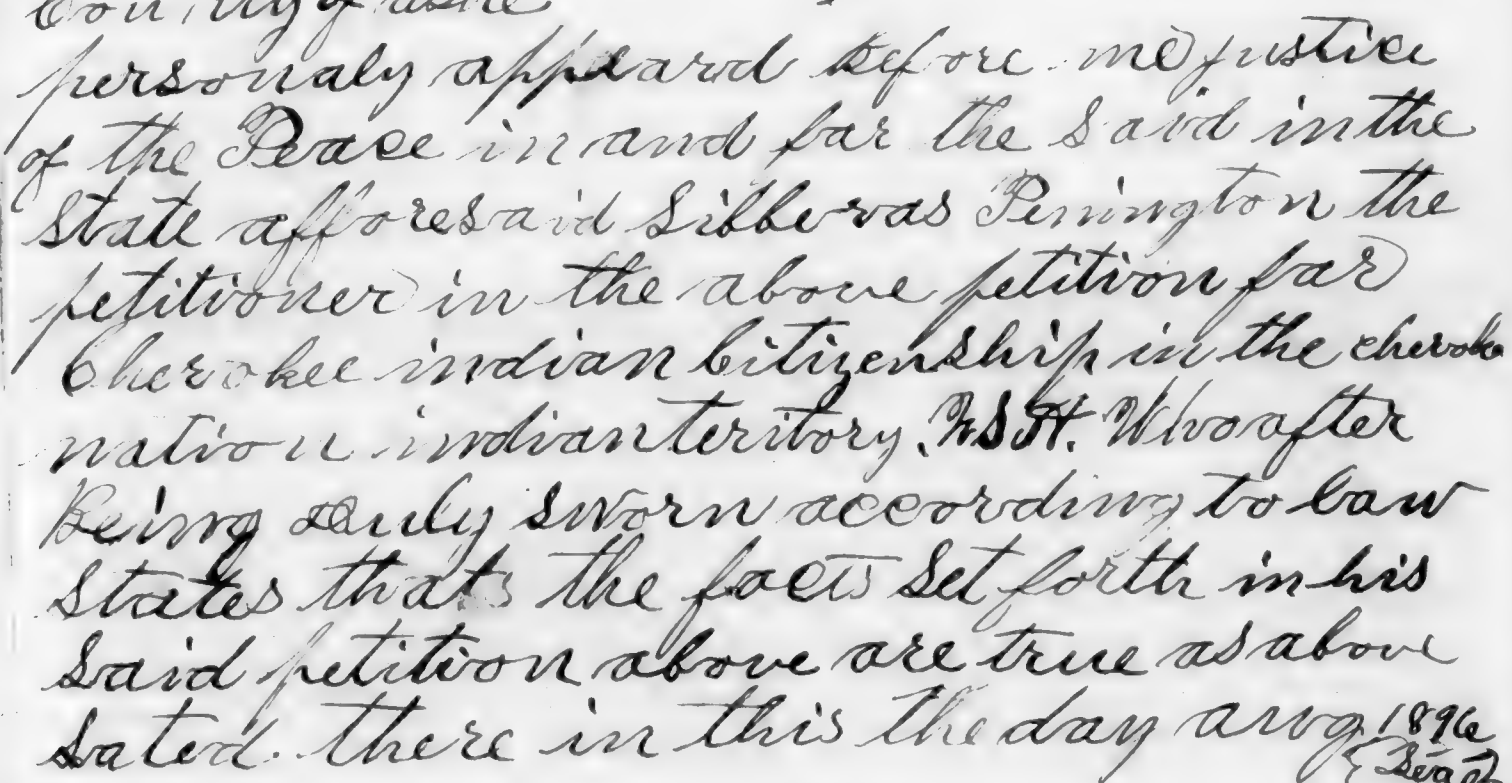 County of ashe
personaly appeard before me justice
of the Peace in and far the said in the
state afforesaid Sibbervas Penington the
petitioner in the above petition far
Cherokee indian Citizenship in the cherokee
nation indian teritory. Who after
Being duly sworn according to Law
states thats the facts set forth in his
said petition above are true as above
sated. there in this the day aug 1896